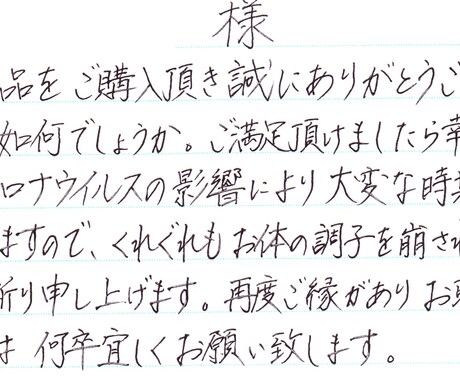 様
品をご購入頂き誠にありがとうご
如何でしょうか。ご満足頂けましたら幸
ロナウイルスの影響により大変な時
ますので、くれぐれもお体の調子を崩され
祈り申し上げます。再度ご縁がありお
は何卒宜しくお願い致します。